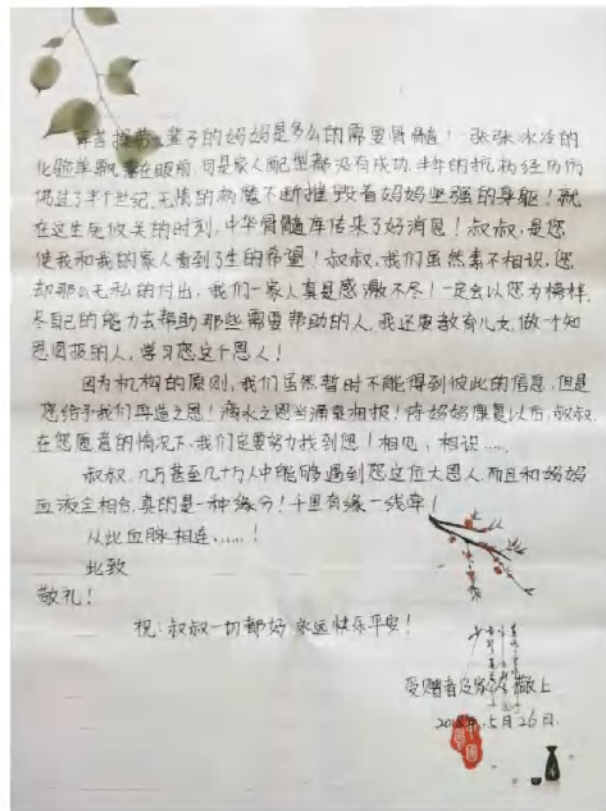 辛苦操劳一辈子的妈妈是多么的需要骨髓！一张张冰冷的
化验单飘落在眼前，可是家人配型都没有成功，半年的抗病经历仿
佛过了半个世纪，无情的病魔不断摧毁着妈妈坚强的身躯！就
在这生死攸关的时刻，中华骨髓库传来了好消息！叔叔，是您
使我和我的家人看到了生的希望！叔叔，我们虽然素不相识，您
却那么无私的付出，我们一家人真是感激不尽！一定会以您为榜样，
尽自己的能力去帮助那些需要帮助的人，我还要教育儿女，做一个知
恩图报的人，学习您这个恩人！
因为机构的原则，我们虽然暂时不能得到彼此的信息，但是
您给予我们再造之恩！滴水之恩当涌泉相报！待妈妈康复以后，叔叔，
在您愿意的情况下，我们定要努力找到您！相见、相识……
叔叔，几万甚至几十万人中能够遇到您这位大恩人，而且和妈妈
血液全相合，真的是一种缘分！千里有缘一线牵！
从此血脉相连……！
此致
敬礼！
祝：叔叔一切都好，永远快乐平安！
受赠者及家人 敬上
年5月26日.
中國